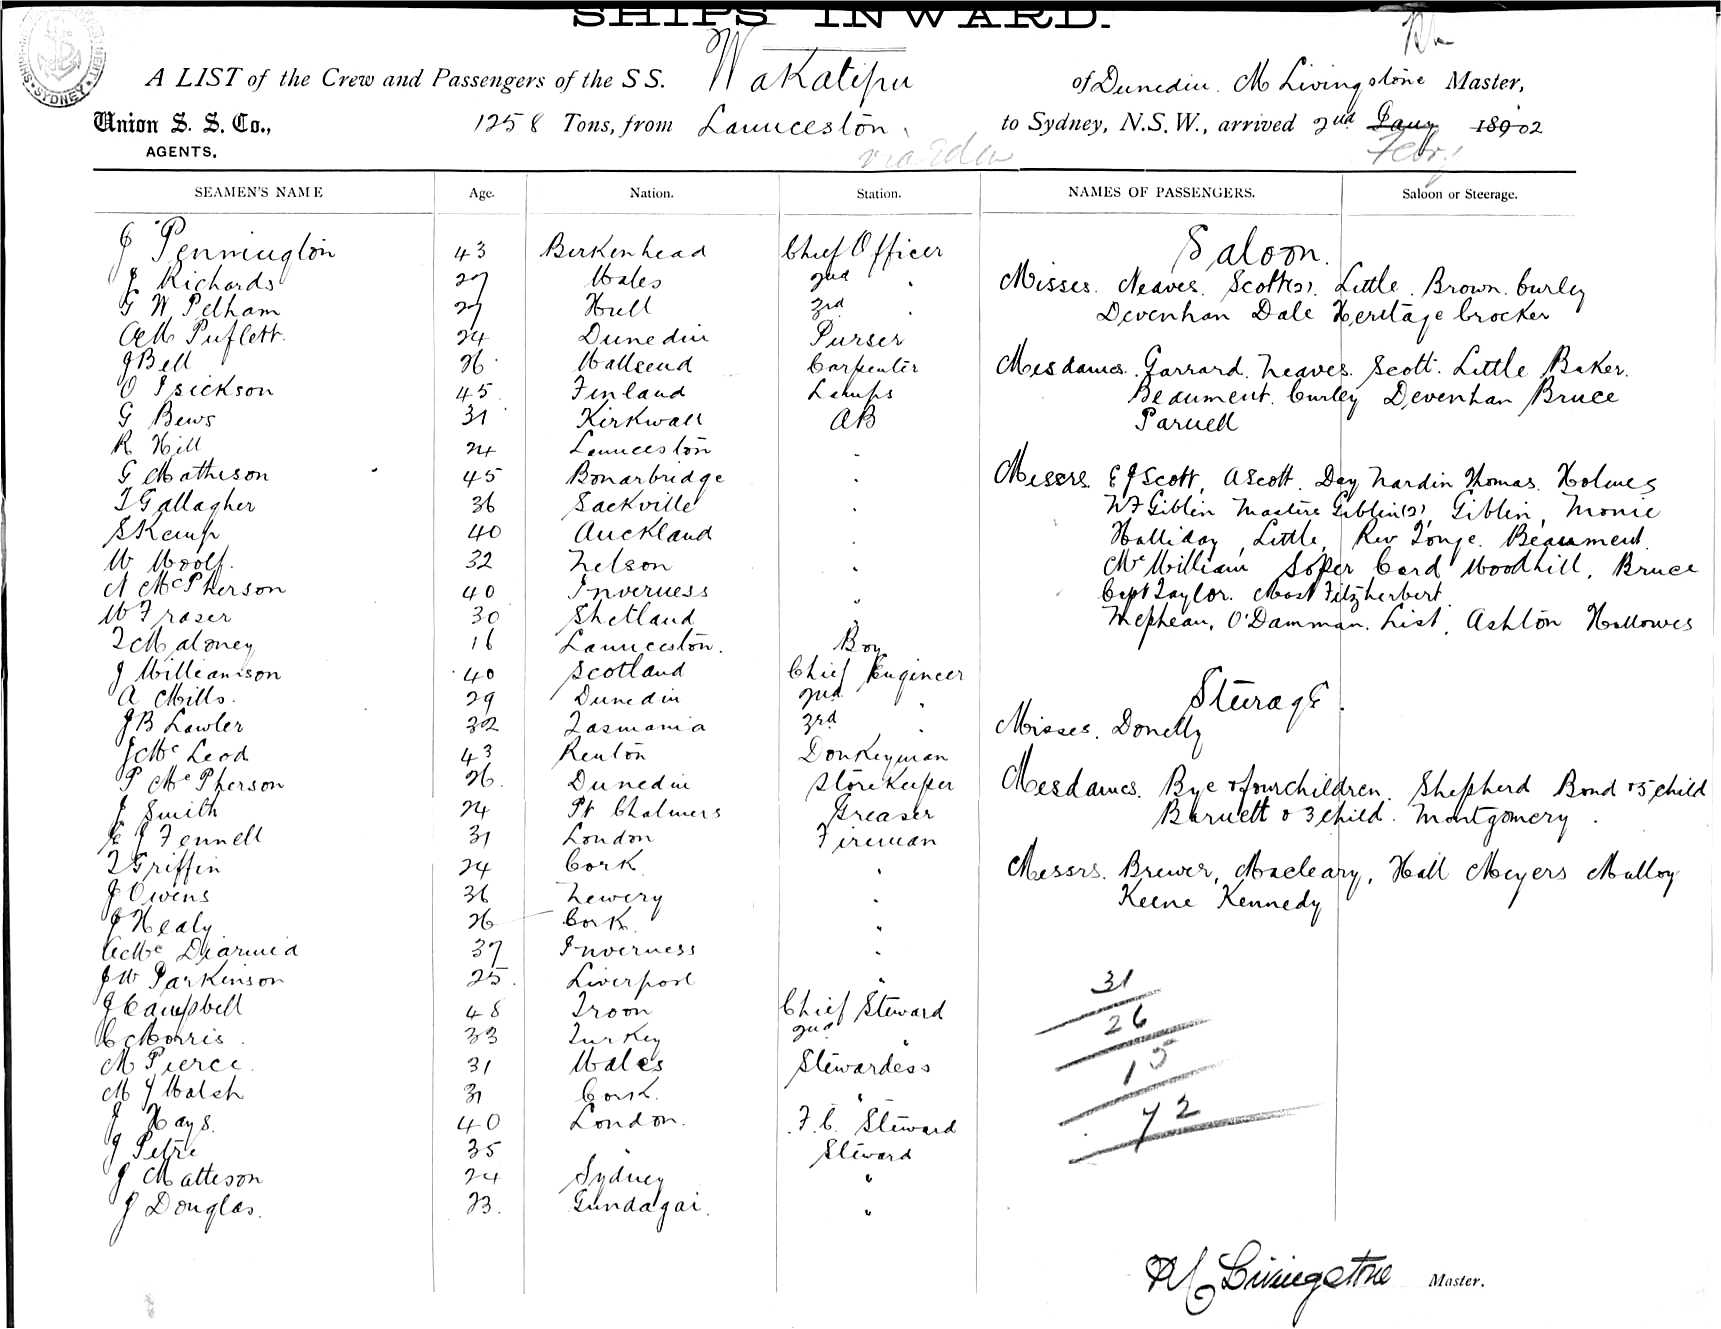 SHIPS INWARD.
A LIST of the Crew and Passengers of the S S. Wakatipu of Dunedin. M Livingstone Master,
Union S. S. Co., 1258 Tons, from Launceston, to Sydney, N.S.W., arrived 2nd Jany 189 02
AGENTS,
via Eden Feby
SEAMEN'S NAME Age. Nation. Station. NAMES OF PASSENGERS. Saloon or Steerage.
J Pennington 43 Birkenhead Chief Officer
J Richards 27 Wales 2nd "
G W Pelham 27 Hull 3rd "
A M Puflett. 24 Dunedin Purser
J Bell 26 Wallsend Carpenter
O Isickson 45 Finland Lamps
G Bews 31 Kirkwall AB
R Hill 24 Launceston "
G Matheson 45 Bonarbridge "
T Gallagher 36 Sackville "
S Kemp 40 Auckland "
W Woolf. 32 Nelson "
A McPherson 40 Inverness "
W Fraser 30 Shetland "
T Maloney 16 Launceston. Boy
J Williamson 40 Scotland Chief Engineer
A Mills. 29 Dunedin 2nd "
J B Lawler 32 Tasmania 3rd "
J McLeod 43 Renton Donkeyman
P McPherson 26. Dunedin Storekeeper
J Smith 24 Pt Chalmers Greaser
E J Fennell 31 London Fireman
T Griffin 24 Cork "
J Owens 36 Newery "
J Healy 26 Cork "
A Mc Diarmid 37 Inverness "
J W Parkinson 25. Liverpool "
J Campbell 48 Troon Chief Steward
C Morris. 33 Turkey 2nd "
M Pierce. 31 Wales Stewardess
M J Walsh 31 Cork. "
J Hays. 40 London. F.C. Steward
J Petre 35 " Steward
J Matteson 24 Sydney "
J Douglas. 23. Gundagai. "
Saloon.
Misses. Neaves. Scott(2). Little. Brown. Curley
Devenhan Dale Heritage Crocker
Mesdames. Garrard. Neaves. Scott. Little Baker.
Beaument. Curley Devenhan Bruce
Parnell
Messrs. E J Scott, A Scott. Day Nardin Thomas. Holmes
W F Giblin Masters Giblin(2), Giblin, Monie
Halliday, Little, Rev Tonge. Beaument.
McWilliam Soper Card Woodhill, Bruce
Capt Taylor. Mast Fitzherbert.
Mephean, O'Damman. List, Ashton Hallowes
Sturage.
Misses. Donelly
Mesdames. Bye & four children. Shepherd Bond & 5 child
Barnett & 3 child. Montgomery.
Messrs. Brewer, Macleary, Hall Meyers Malloy
Keene Kennedy
31
26
15
72
M Livingstone Master.